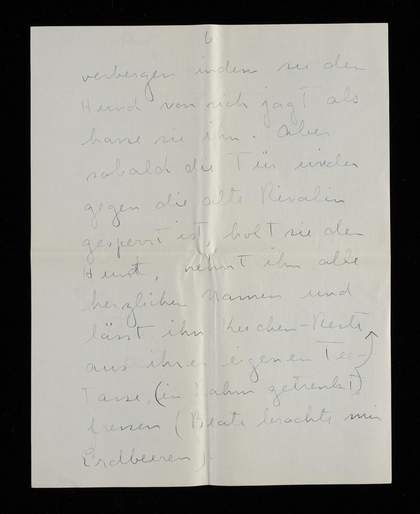 6
verbergen indem sie den
Hund von sich jagt als
hasse sie ihn. Aber
sobald die Tür wieder
gegen die alte Rivalin
gesperrt ist, holt sie den
Hund, nennt ihn alle
herzlichen Namen und
lässt ihn Kuchen-Reste
aus ihrer eigenen Tee-
Tasse, (in Rahm getränkt)
fressen (Beate brachte mir
Erdbeeren).